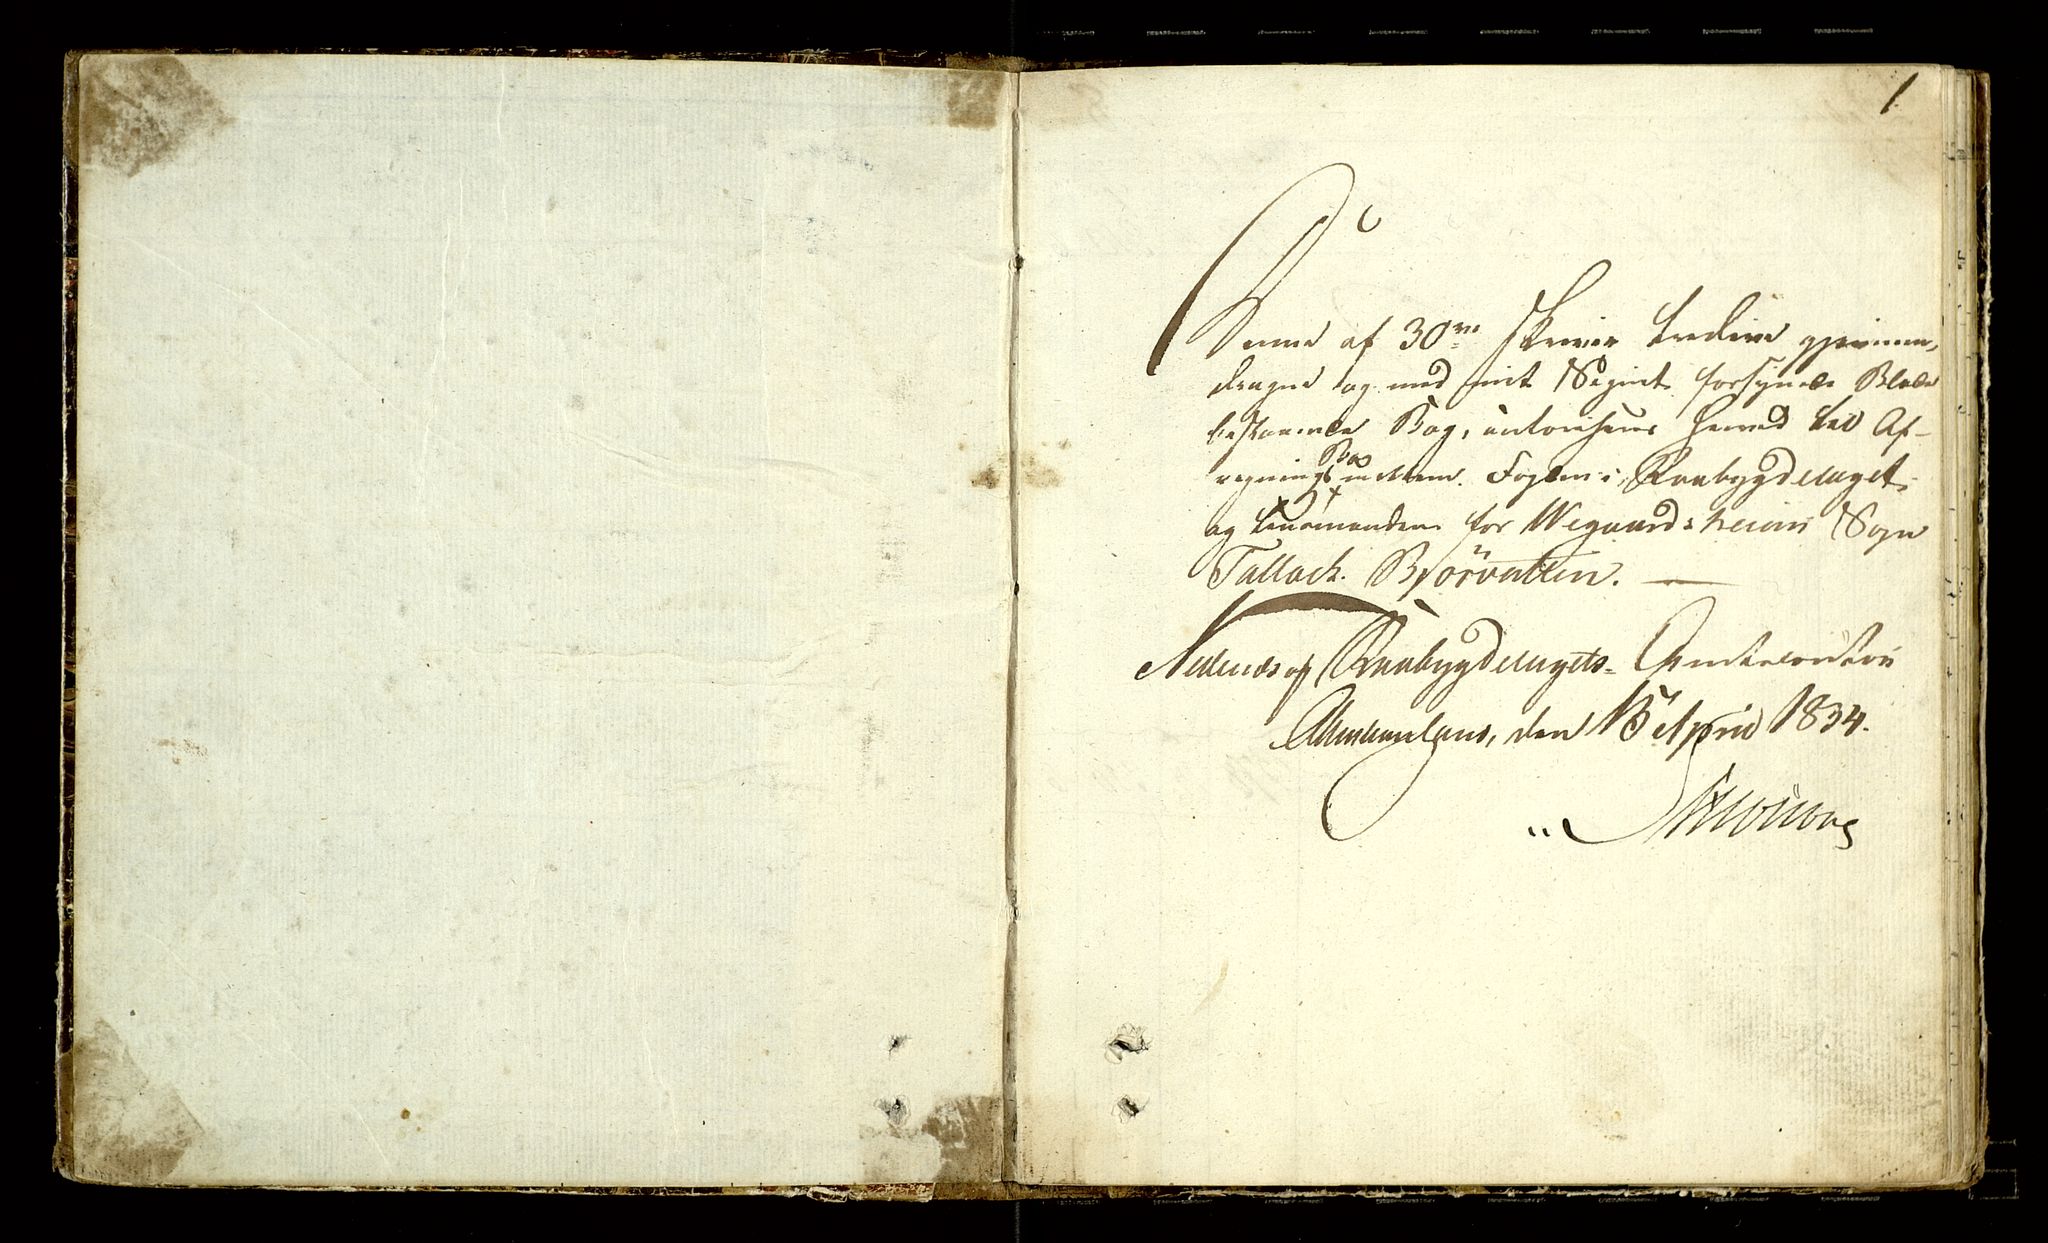 1
Denne af 30ve skriver tredive gjennem-
dragne og med mit Segnet forsynede Blade
bestaaende Bog, autoriseres herved til Af-
regnings Bog mellem Fogden i Raabygdelaget
og Lensmanden for Wegaardsheiens Sogn
Tallack Bjørvatten.
Nedenæs og Raabygdelagets Amtscontoir
den 15 April 1834.